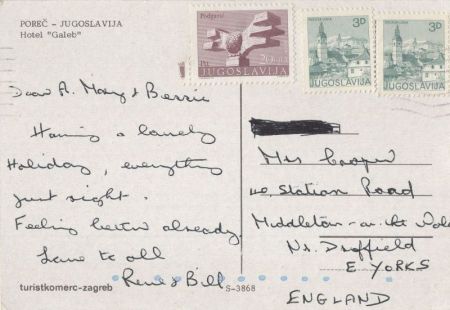 POREČ - JUGOSLAVIJA
Hotel "Galeb"
Dear A. Mary & Bessie
Having a lovely
Holiday, everything
just right.
Feeling better already.
Love to all
Rene & Bill
turistkomerc-zagreb
S-3868
Podgarić
JUGOSLAVIJA
3D
JUGOSLAVIJA
3D
JUGOSLAVIJA
Mrs Cooper
Station Road
Middleton-on-the-Wolds
Nr. Driffield
E YORKS
ENGLAND